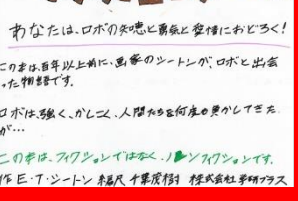 あなたは、ロボの知恵と勇気と愛情におどろく!
この本は、百年以上前に、画家のシートンが、ロボと出会
った物語です。
ロボは、強く、かしこく、人間たちを何度も負かしてきた
が…
この本は、フィクションではなく、ノンフィクションです。
作 E・T・シートン 編訳 千葉茂樹 株式会社 学研プラス